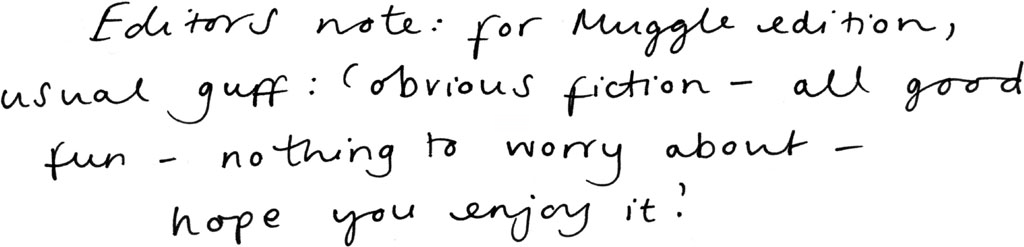 Editors note: for Muggle edition,
usual guff: 'obvious fiction – all good
fun – nothing to worry about –
hope you enjoy it'.